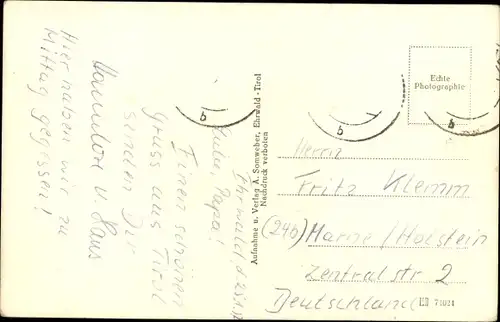 Ehrwald
Lieber Papa!
Einen schönen
Gruss aus Tirol
senden Dir
Hannelore u. Hans
Hier haben wir zu
Mittag gegessen!
Aufnahme u. Verlag A. Somweber, Ehrwald - Tirol
Nachdruck verboten
Echte
Photographie
b
b
b
Herrn
Fritz Klemm
(24b) Marne / Holstein
Zentralstr 2
Deutschland